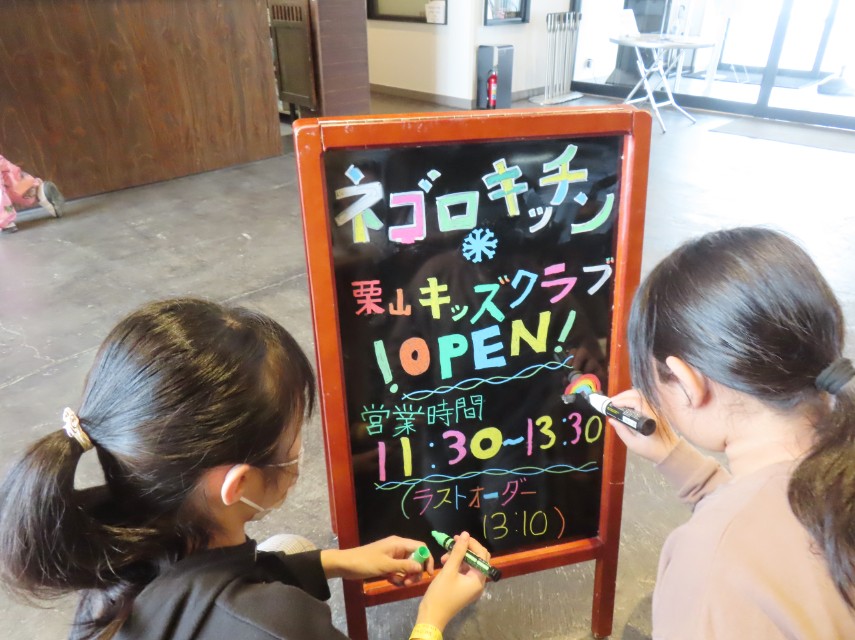 ネゴロキッチン
栗山キッズクラブ
!OPEN!
営業時間
11:30~13:30
(ラストオーダー
13:10)